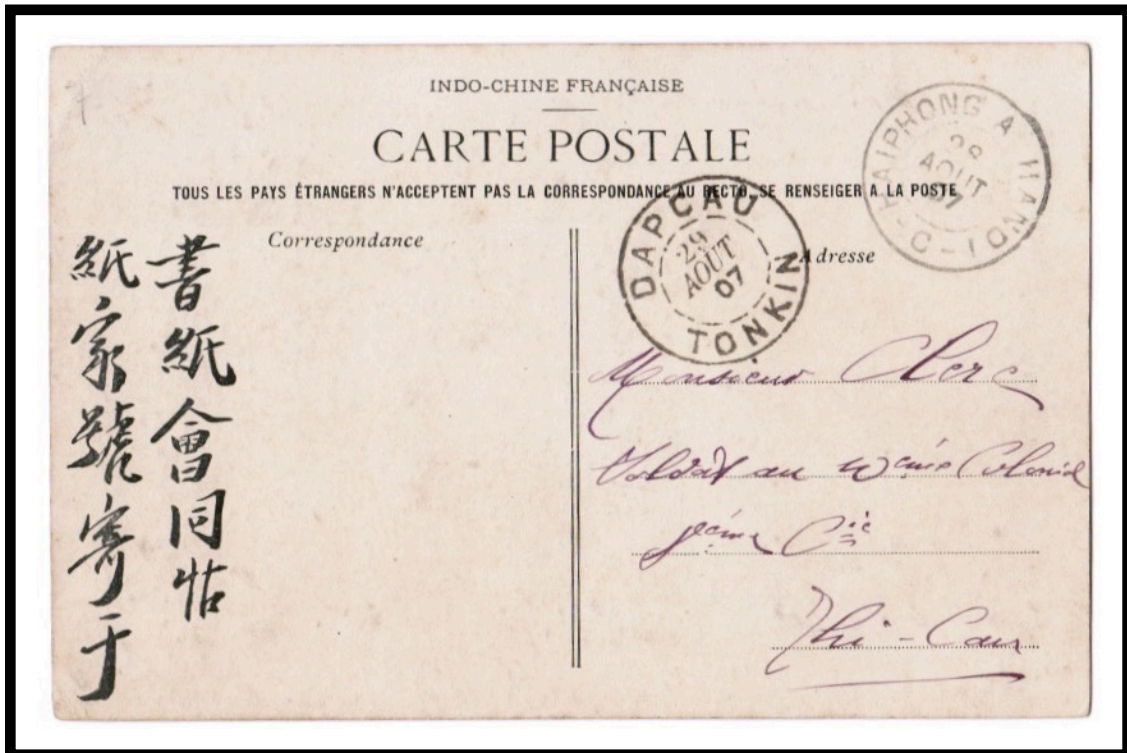 INDO-CHINE FRANÇAISE
CARTE POSTALE
TOUS LES PAYS ÉTRANGERS N'ACCEPTENT PAS LA CORRESPONDANCE AU RECTO, SE RENSEIGER A LA POSTE
Correspondance
Adresse
HAIPHONG A HANOI
28
AOUT
07
DAPCAU
29
AOUT
07
TONKIN
書紙會同
紙家號寄于
Monsieur Clerc
Soldat au Colonial
Cie
Thi-Cau